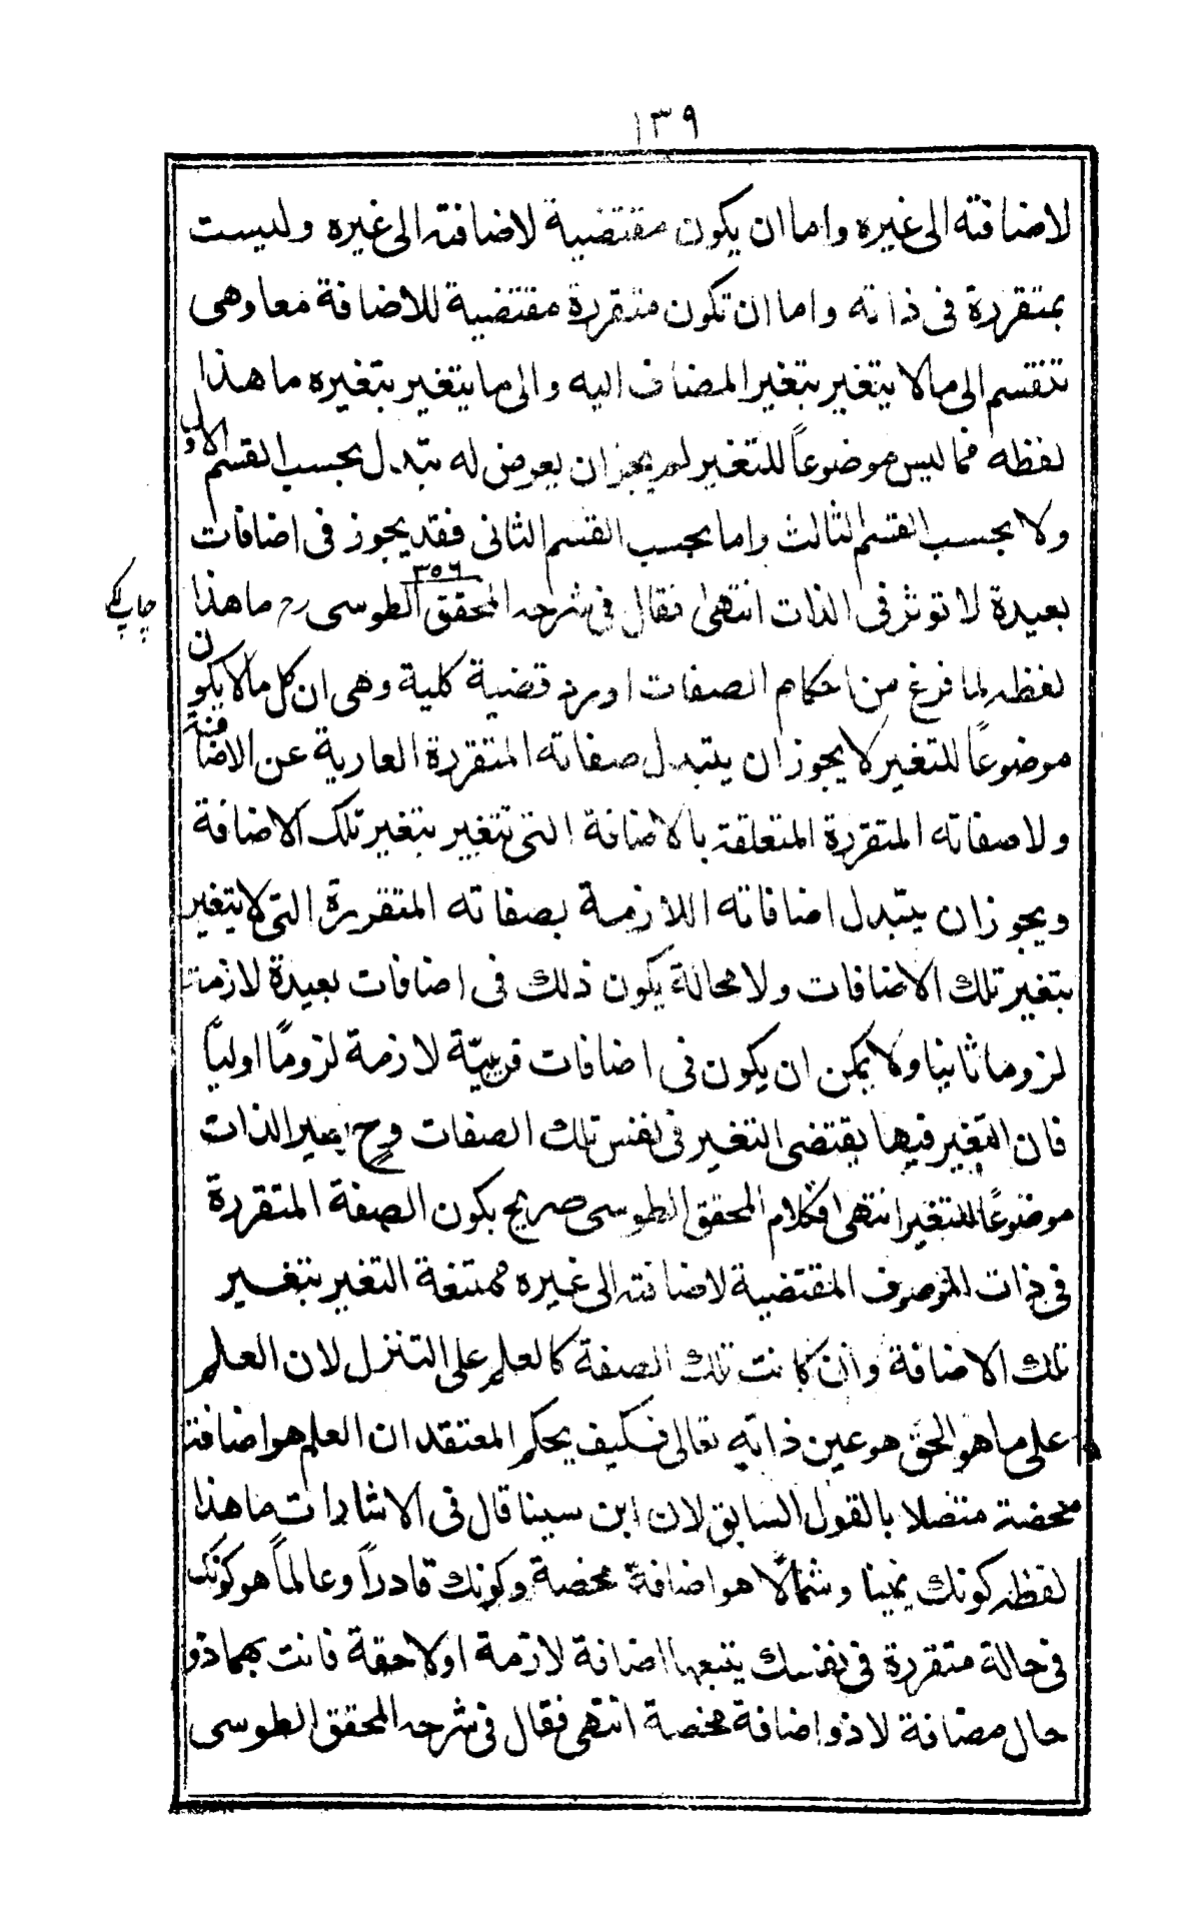 ١٣٩
لاضافته الى غيره واما ان يكون مقتضية لاضافته الى غيره وليست
بمتقررة فى ذاته واما ان تكون متقررة مقتضية للاضافة معا وهى
تنقسم الى ما لا يتغير بتغير المضاف اليه والى ما يتغير بتغيره ما هذا
لفظه فما ليس موضوعاً للتغير لم يجز ان يعرض له تبدل بحسب القسم الاول
ولا بحسب القسم الثالث واما بحسب القسم الثانى فقد يجوز فى اضافات
بعيدة لا توثر فى الذات انتهى فقال فى شرحه المحقق الطوسى رح ما هذا
٣٥٦
لفظه لما فرغ من احكام الصفات اورد قضية كلية وهى ان كل ما لا يكون
موضوعاً للتغير لا يجوز ان يتبدل صفاته المتقررة العارية عن الاضافة
ولا صفاته المتقررة المتعلقة بالاضافة التى تتغير بتغير تلك الاضافة
ويجوز ان يتبدل اضافاته اللازمة بصفاته المتقررة التى لا يتغير
بتغير تلك الاضافات ولا محالة يكون ذلك فى اضافات بعيدة لازمة
لزوما ثانيا ولا يمكن ان يكون فى اضافات قريبة لازمة لزومًا اوليًا
فان التغير فيها يقتضى التغير فى نفس تلك الصفات وح يصير الذات
موضوعًا للتغير انتهى فكلام المحقق الطوسى صريح بكون الصفة المتقررة
فى ذات الموصوف المقتضية لاضافته الى غيره ممتنعة التغير بتغير
تلك الاضافة وان كانت تلك الصفة كالعلم على التنزل لان العلم
على ما هو الحق هو عين ذاته تعالى فكيف يحكم المعتقد ان العلم هو اضافة
محضة متصلا بالقول السابق لان ابن سينا قال فى الاشارات ما هذا
لفظه كونك يمينا وشمالًا هو اضافة محضة وكونك قادراً وعالماً هو كونك
فى حالة متقررة فى نفسك يتبعها اضافة لازمة او لاحقة فانت بهما ذو
حال مضافة لا ذو اضافة محضة انتهى فقال فى شرحه المحقق الطوسى